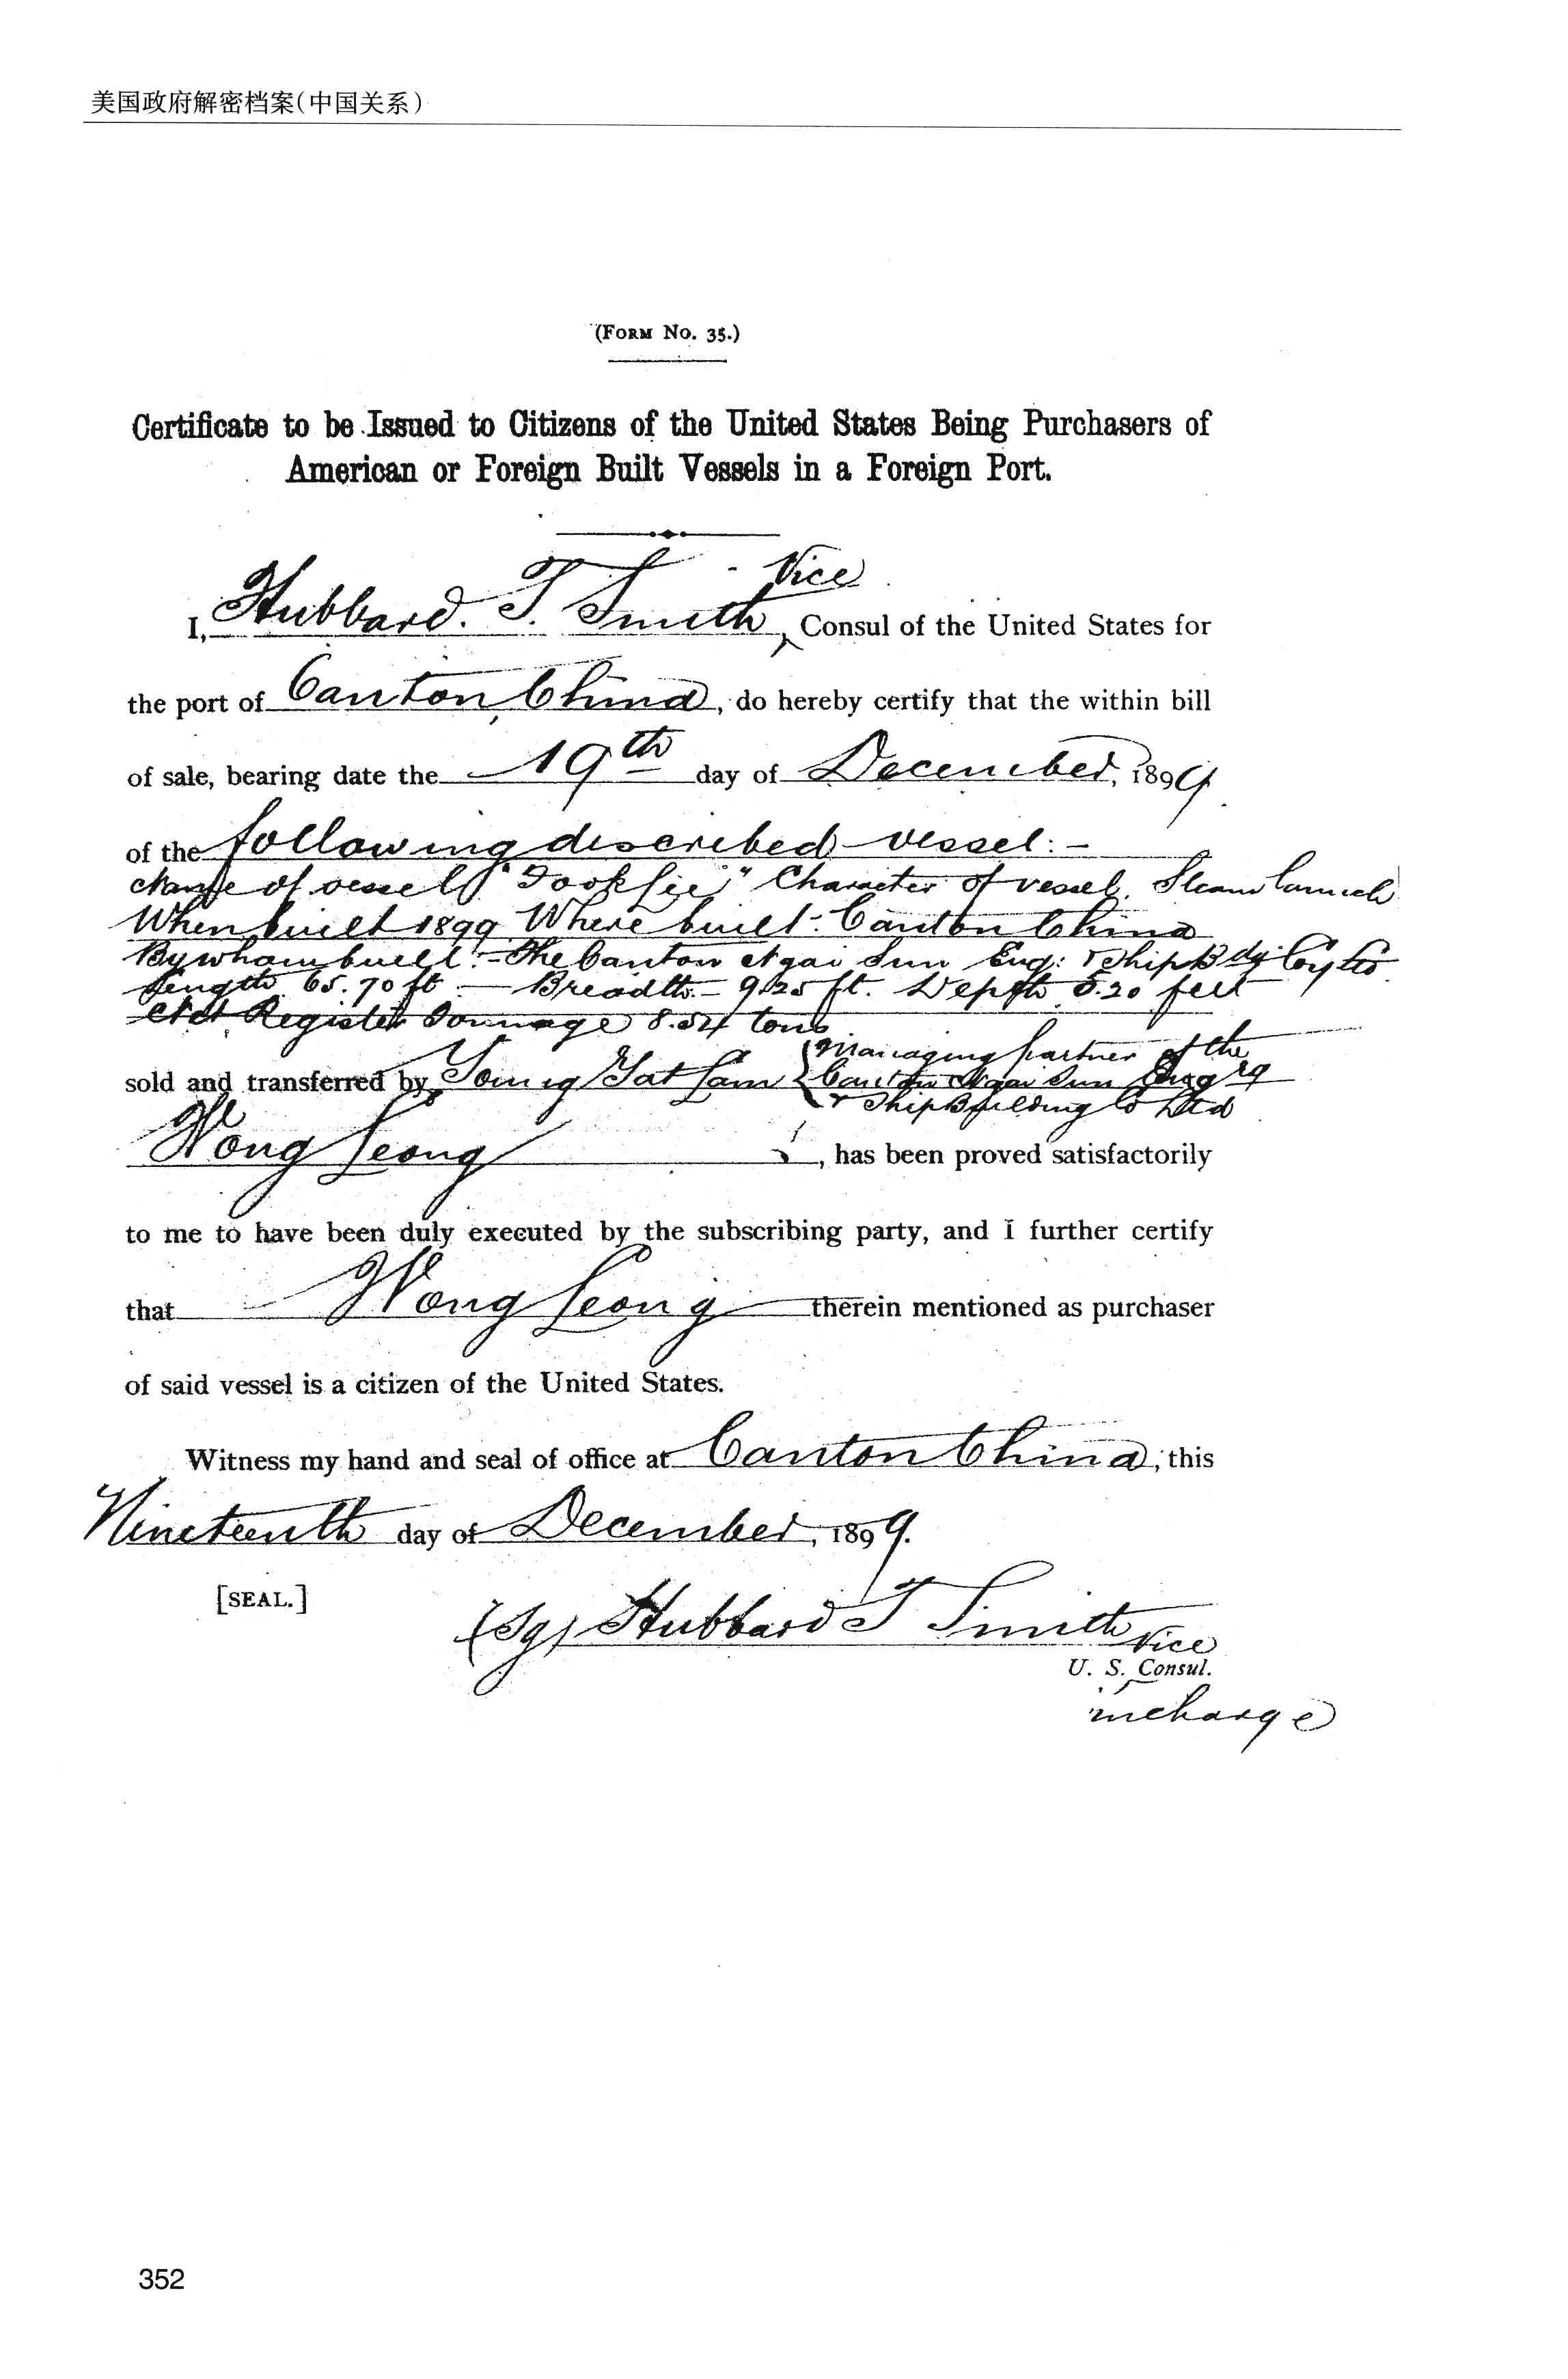 美国政府解密档案(中国关系)
(FORM No. 35.)
Certificate to be Issued to Citizens of the United States Being Purchasers of
American or Foreign Built Vessels in a Foreign Port.
Vice
I, Hubbard. T. Smith, Consul of the United States for
the port of Canton, China, do hereby certify that the within bill
of sale, bearing date the 19th day of December, 1899
of the following described vessel:-
Name of vessel Character of vessel. Steam Launch
When built 1899 Where built:- Canton China
By whom built:- The Canton Ngai Sun Eng: & Ship Bdg Coy
Length 65.70 ft. — Breadth - 9.25 ft. Depth 5.20 feet
Net Register Tonnage 8.54 tons
Managing partner of the
sold and transferred by Yat Lam Canton Ngai Sun Engrg
& ShipBuilding Co Ltd
Wong Leong, has been proved satisfactorily
to me to have been duly executed by the subscribing party, and I further certify
that Wong Leong therein mentioned as purchaser
of said vessel is a citizen of the United States.
Witness my hand and seal of office at Canton China, this
Nineteenth day of December, 1899.
[SEAL.] (Sg) Hubbard T Smith
Vice
U. S. Consul.
incharge
352